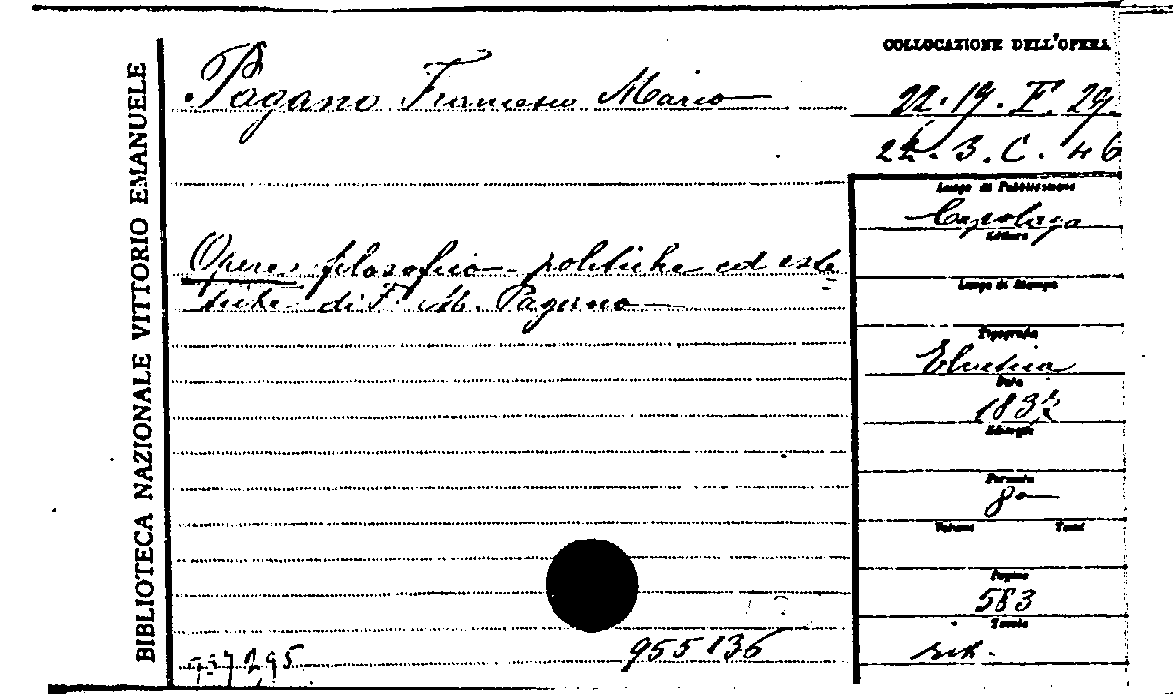 BIBLIOTECA NAZIONALE VITTORIO EMANUELE
Pagano Francesco Mario
Opere filosofico-politiche ed este=
tiche di F. M. Pagano
955136
COLLOCAZIONE DELL'OPERA
22.19.F.29
22.3.C.46
Luogo di Pubblicazione
Capolago
Editore
Luogo di Stampa
Tipografia
Elvetica
Data
1837
Formato
8o
Volumi Tomi
Pagine
583
Tavole